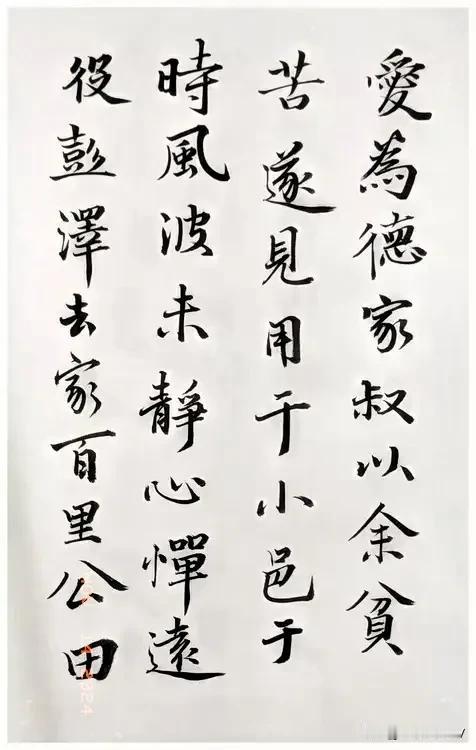 愛為德家叔以余貧
苦遂見用于小邑于
時風波未靜心憚遠
役彭澤去家百里公田